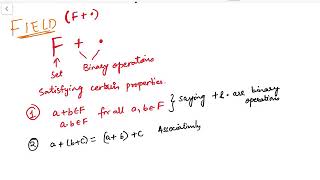 FIELD (F + •)
F + •
Set Binary operations
Satisfying certain properties.
① a+b∈F for all a, b∈F } saying + & • are binary
a·b∈F operations
② a+(b+c) = (a+b)+c Associativity